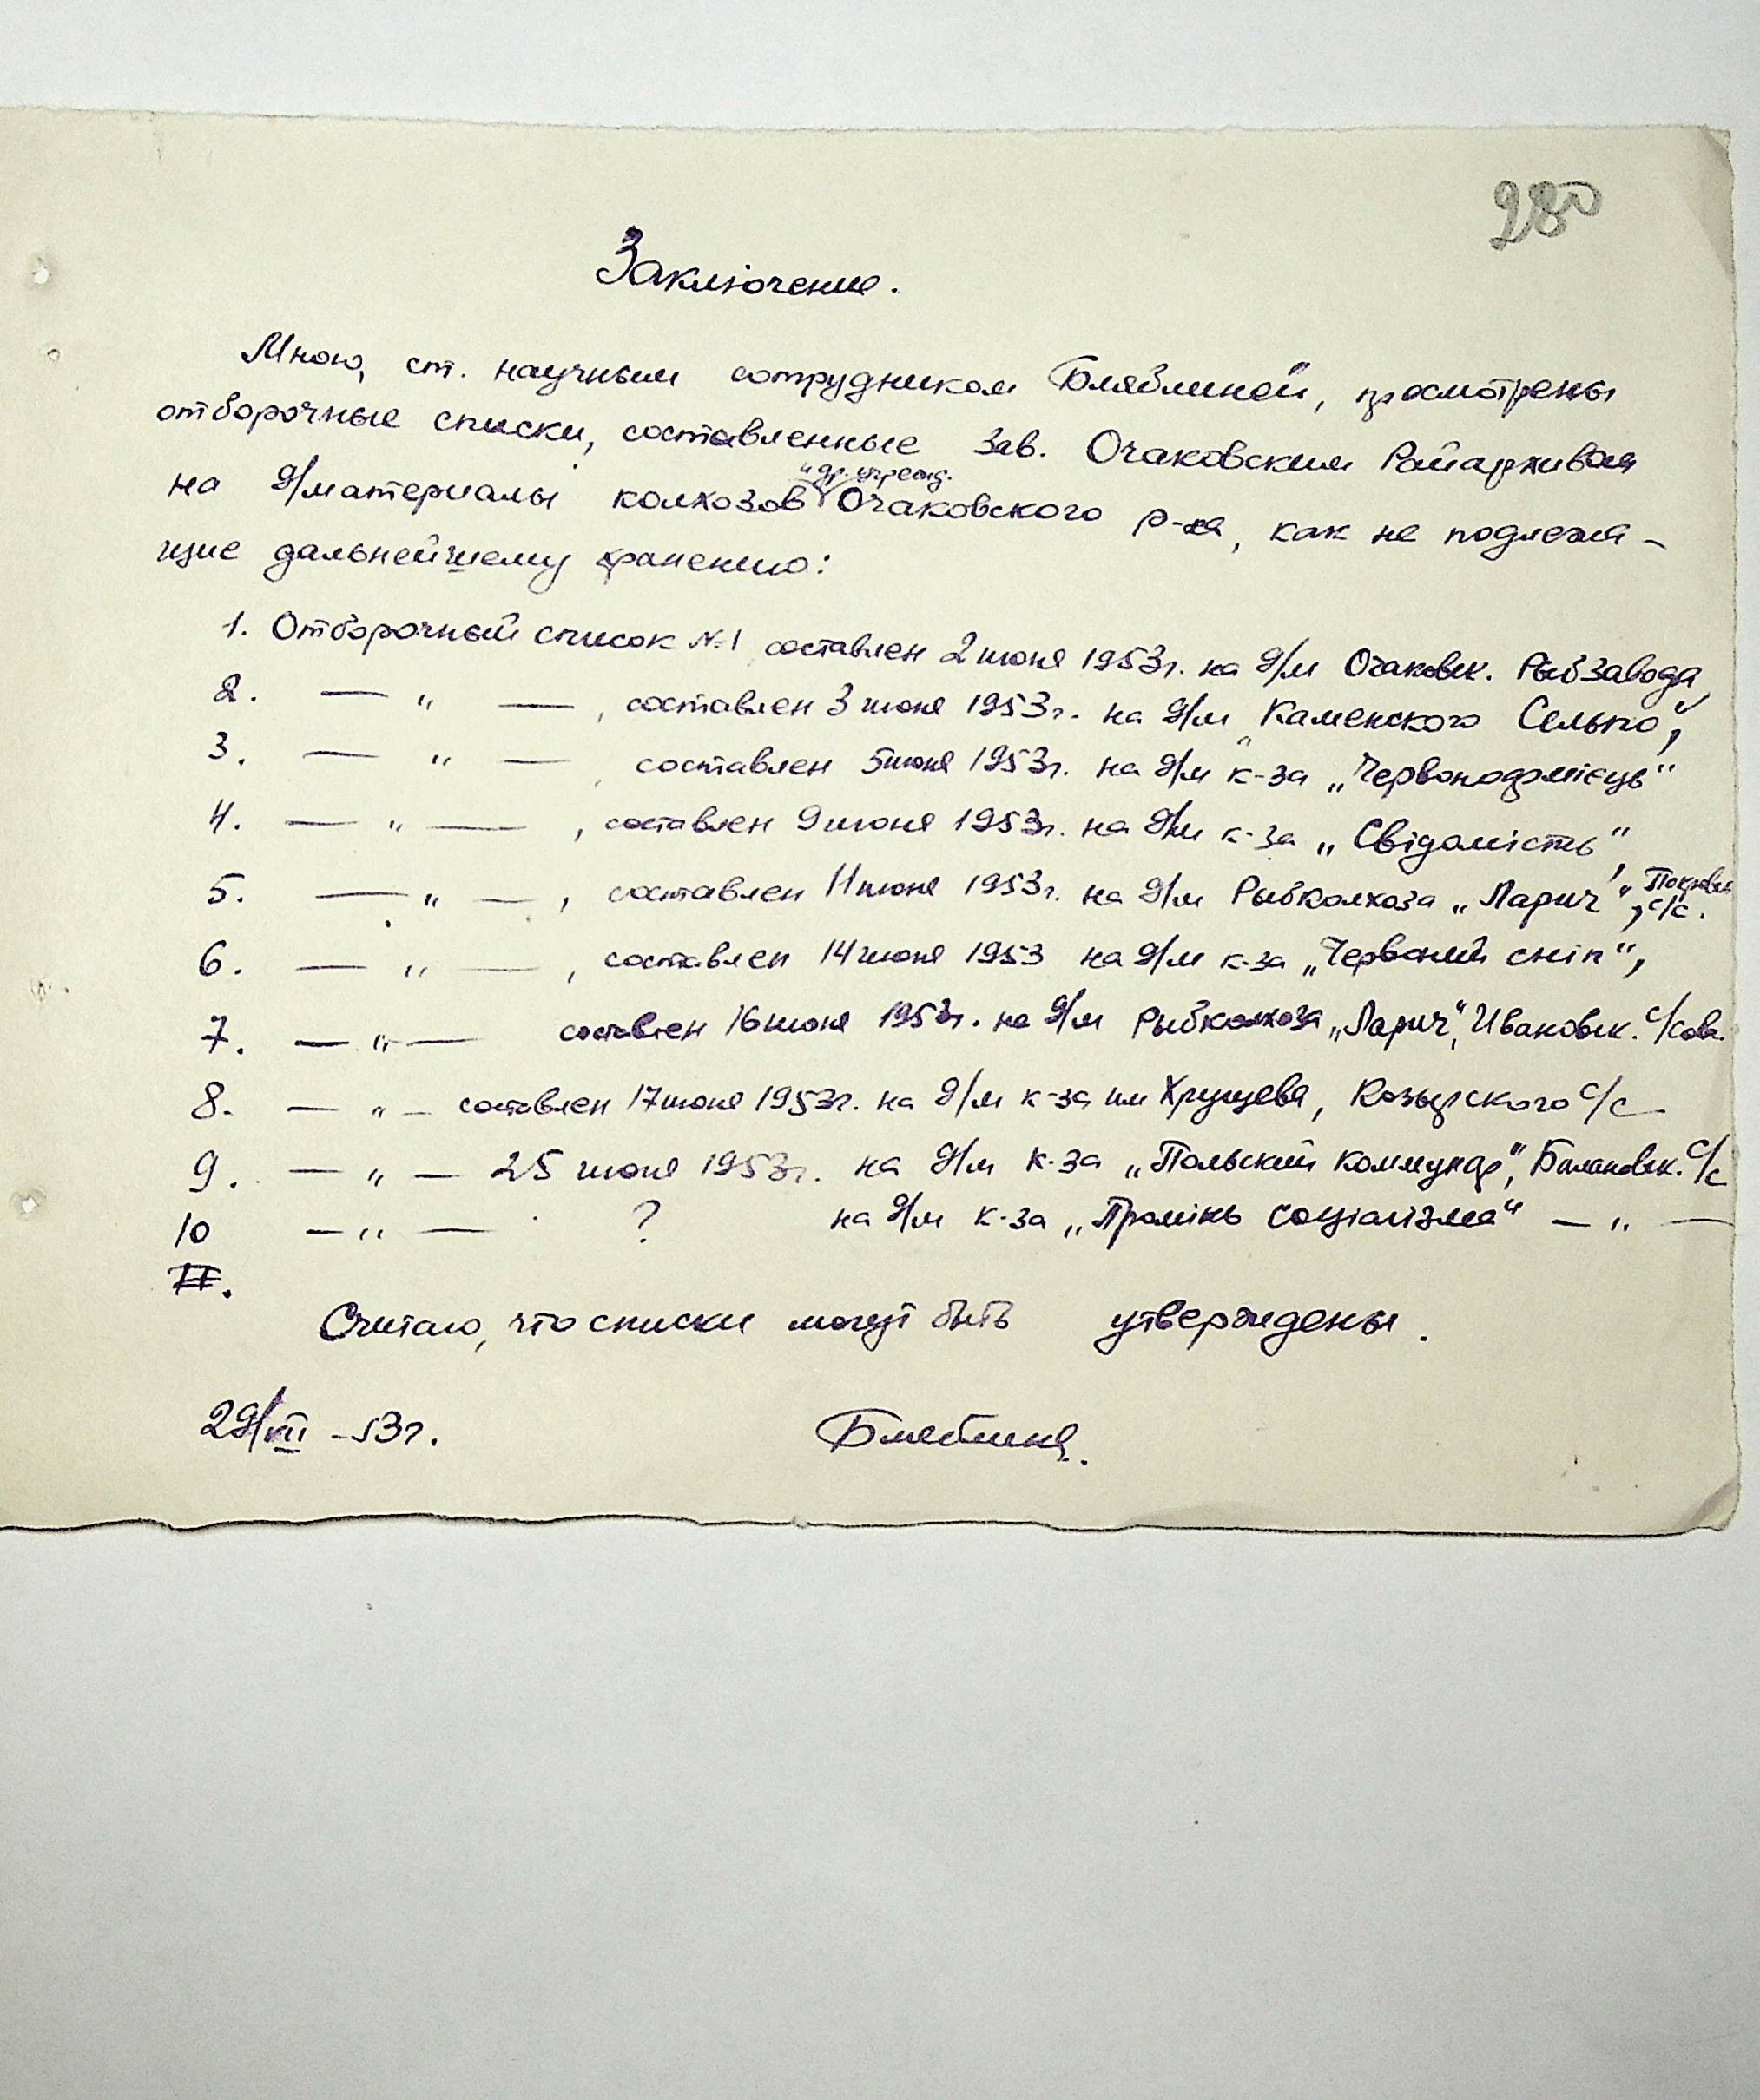 280
Заключение.
Мною, ст. научным сотрудником Бляблиной, просмотрены
отборочные списки, составленные Зав. Очаковским Райархивом
и др. учрежд.
на д/материалы колхозов Очаковского р-на, как не подлежа-
щие дальнейшему хранению:
1. Отборочный список №1 составлен 2 июня 1953г. на д/м Очаковск. Рыбзавода,
2. — " — , составлен 3 июня 1953г. на д/м "Каменского Сельпо",
3. — " — , составлен 5 июня 1953г. на д/м к-за „Червоноармієць"
4. — " — , составлен 9 июня 1953г. на д/м к-за „Свідомість",
5. — " — , составлен 11 июня 1953г. на д/м Рыбколхоза „Ларич", с/с.
6. — " — , составлен 14 июня 1953 на д/м к-за „Червоний сніп",
7. — " — составлен 16 июня 1953г. на д/м Рыбколхоза „Ларич", Ивановск. с/сов.
8. — " — составлен 17 июня 1953г. на д/м к-за им Хрущева, Козырского с/с
9. — " — 25 июня 1953г. на д/м к-за „Польский коммунар", с/с
10 — " — ? на д/м к-за „Промінь соціалізма" — " —
Считаю, что списки могут быть утверждены.
29/VII -53г. Бляблина.